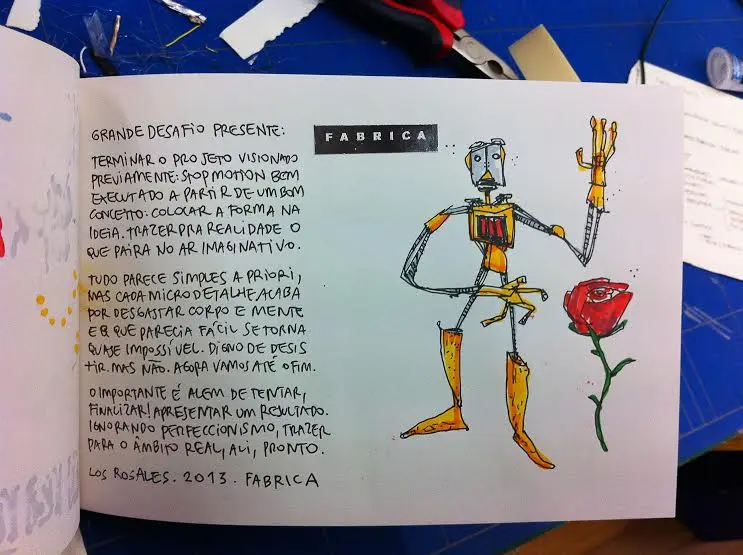 GRANDE DESAFIO PRESENTE:
FABRICA
TERMINAR O PROJETO VISIONADO
PREVIAMENTE: STOP MOTION BEM
EXECUTADO A PARTIR DE UM BOM
CONCEITO: COLOCAR A FORMA NA
IDEIA. TRAZER PRA REALIDADE O
QUE PAIRA NO AR IMAGINATIVO.
TUDO PARECE SIMPLES A PRIORI,
MAS CADA MICRO DETALHE ACABA
POR DESGASTAR CORPO E MENTE
E O QUE PARECIA FÁCIL SE TORNA
QUASE IMPOSSÍVEL. DIGNO DE DESIS
TIR. MAS NÃO. AGORA VAMOS ATÉ O FIM.
O IMPORTANTE É ALEM DE TENTAR,
FINALIZAR! APRESENTAR UM RESULTADO.
IGNORANDO PERFECCIONISMO, TRAZER
PARA O ÂMBITO REAL, ALI, PRONTO.
LOS ROSALES. 2013. FABRICA